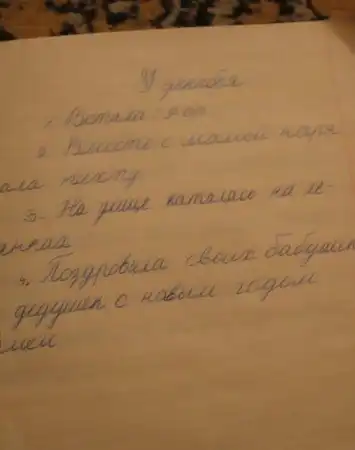 декабря
1. Встала
2. Вместе с мамой наря
ала
3. На улице каталась на ле-
4. Поздровила своих бабушек
дедушек с новым годом